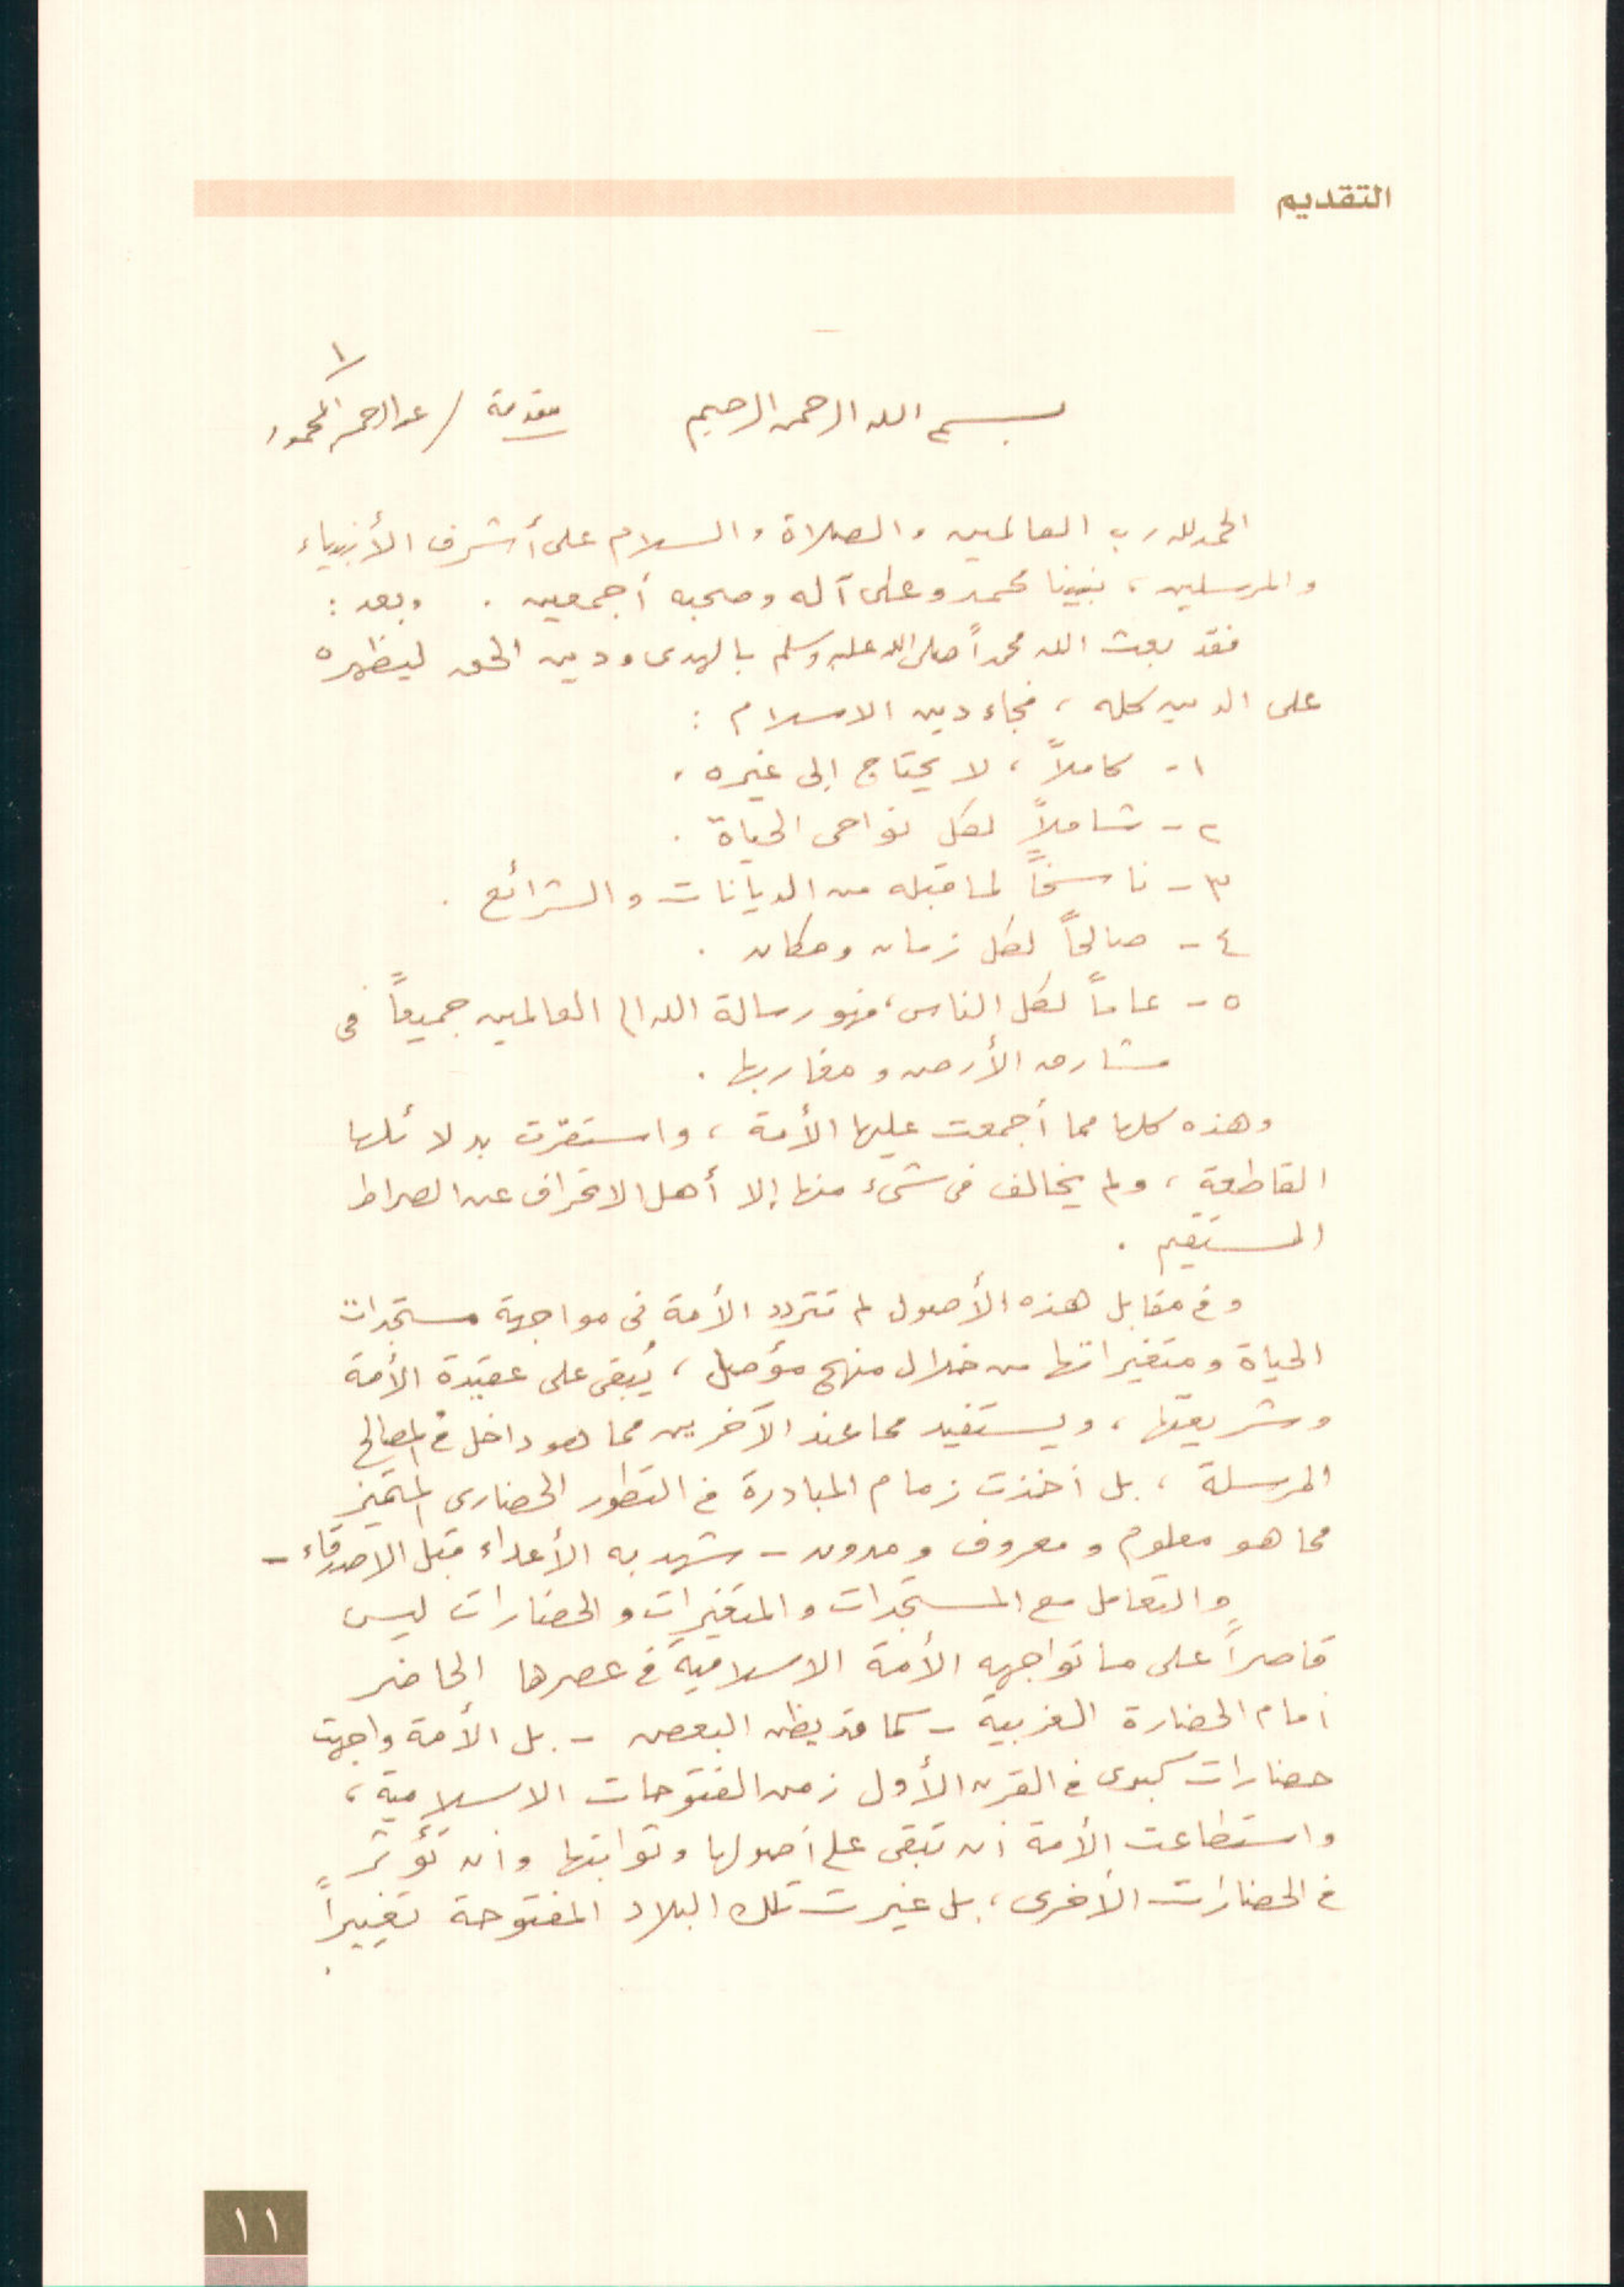 التقديم
١
بسم الله الرحمن الرحيم مقدمة / عبدالرحمن المحمود
الحمد لله رب العالمين والصلاة والسلام على أشرف الأنبياء
والمرسلين، نبينا محمد وعلى آله وصحبه أجمعين . وبعد :
فقد بعث الله محمداً صلى الله عليه وسلم بالهدى ودين الحق ليظهره
على الدين كله ، فجاء دين الاسلام :
١- كاملاً ، لا يحتاج إلى غيره .
٢- شاملاً لكل نواحى الحياة .
٣- ناسخاً لما قبله من الديانات والشرائع .
٤- صالحاً لكل زمان ومكان .
٥- عاماً لكل الناس، فهو رسالة الله الى العالمين جميعاً فى
مشارق الأرض ومغاربها .
وهذه كلها مما أجمعت عليها الأمة ، واستقرت بدلائلها
القاطعة ، ولم يخالف فى شىء منها إلا أهل الانحراف عن الصراط
المستقيم .
وفى مقابل هذه الأصول لم تتردد الأمة فى مواجهة مستجدات
الحياة ومتغيراتها من خلال منهج مؤصل ، يُبقى على عقيدة الأمة
وشريعتها ، ويستفيد مما عند الآخرين مما هو داخل فى المصالح
المرسلة ، بل أخذت زمام المبادرة فى التطور الحضارى المتميز
مما هو معلوم ومعروف ومدون - شهد به الأعداء قبل الاصدقاء -
والتعامل مع المستجدات والمتغيرات والحضارات ليس
قاصراً على ما تواجهه الأمة الاسلامية فى عصرها الحاضر
أمام الحضارة الغربية - كما قد يظن البعض - بل الأمة واجهت
حضارات كبرى فى القرن الأول زمن الفتوحات الاسلامية ،
واستطاعت الأمة أن تبقى على أصولها وثوابتها وأن تؤثر
فى الحضارات الأخرى ، بل غيرت تلك البلاد المفتوحة تغييراً
١١